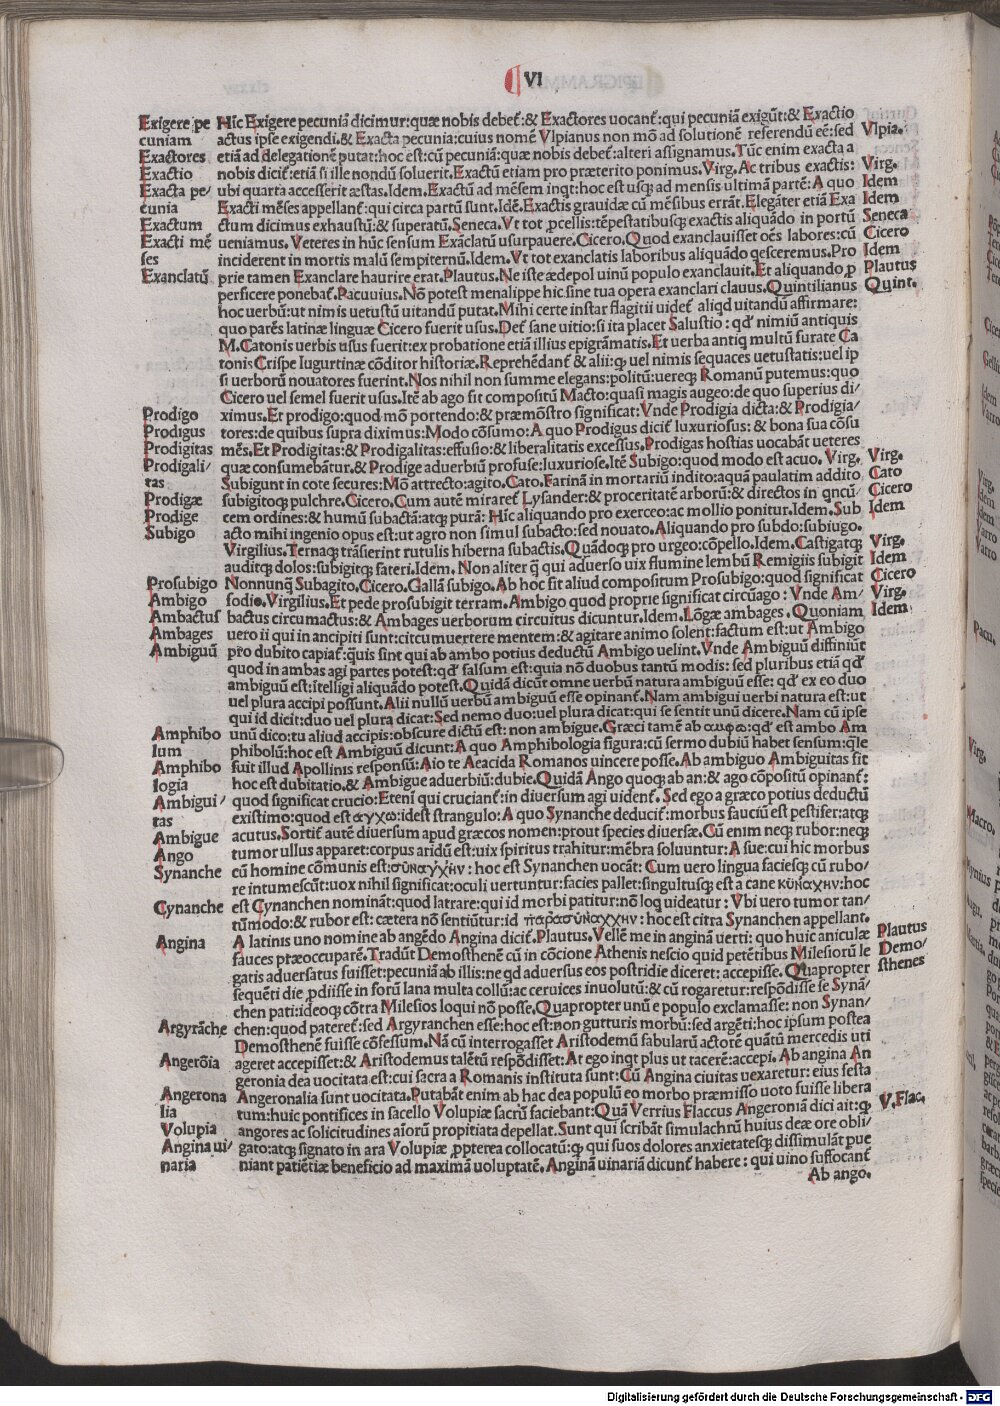 VI
Exigere pe
cuniam
Exactores
Exactio
Exacta pe/
cunia
Exactum
Exacti mē
ses
Exanclatū
Prodigo
Prodigus
Prodigitas
Prodigali/
tas
Prodigæ
Prodige
Subigo
Prosubigo
Ambigo
Ambactus
Ambages
Ambiguū
Amphibo
lum
Amphibo
logia
Ambigui/
tas
Ambigue
Ango
Synanche
Cynanche
Angina
Argyrāche
Angerōia
Angerona
lia
Volupia
Angina ui/
naria
Hic Exigere pecuniā dicimur:quæ nobis debeť:& Exactores uocanť:qui pecuniā exigūt:& Exactio
actus ipse exigendi.& Exacta pecunia:cuius nomē Vlpianus non mō ad solutionē referendū eē:sed
etiā ad delegationē putat:hoc est:cū pecuniā:quæ nobis debeť:alteri assignamus.Tūc enim exacta a
nobis diciť:etiā si ille nondū soluerit.Exactū etiam pro præterito ponimus.Virg.Ac tribus exactis:
ubi quarta accesserit æstas.Idem.Exactū ad mēsem inqt:hoc est usq; ad mensis ultimā partē:A quo
Exacti mēses appellanť:qui circa partū sunt.Idē.Exactis grauidæ cū mēsibus errāt.Elegāter etiā Exa
ctum dicimus exhaustū:& superatū.Seneca.Vt tot ꝓcellis:tēpestatibusq; exactis aliquādo in portū
ueniamus.Veteres in hūc sensum Exāclatū usurpauere.Cicero.Quod exanclauisset oēs labores:cū
inciderent in mortis malū sempiternū.Idem.Vt tot exanclatis laboribus aliquādo qesceremus.Pro
prie tamen Exanclare haurire erat.Plautus.Ne iste ædepol uinū populo exanclauit.Et aliquando ꝓ
perficere ponebať.Pacuuius.Nō potest menalippe hic sine tua opera exanclari clauus.Quintilianus
hoc uerbū:ut nimis uetustū uitandū putat.Mihi certe instar flagitii uideť aliqd uitandū affirmare:
quo parēs latinæ linguæ Cicero fuerit usus.Deť sane uitio:si ita placet Salustio:qđ nimiū antiquis
M.Catonis uerbis usus fuerit:ex probatione etiā illius epigrāmatis.Et uerba antiq multū furate Ca
tonis Crispe Iugurtinæ cōditor historiæ.Reprehēdanť & alii:q; uel nimis sequaces uetustatis:uel ip
si uerborū nouatores fuerint.Nos nihil non summe elegans:politū:uereq; Romanū putemus:quo
Cicero uel semel fuerit usus.Itē ab ago fit compositū Macto:quasi magis augeo:de quo superius di/
ximus.Et prodigo:quod mō portendo:& præmōstro significat:Vnde Prodigia dicta:& Prodigia/
tores:de quibus supra diximus:Modo cōsumo:A quo Prodigus diciť luxuriosus:& bona sua cōsu
mēs.Et Prodigitas:& Prodigalitas:effusio:& liberalitatis excessus.Prodigas hostias uocabāt ueteres
quæ consumebātur.& Prodige aduerbiū profuse:luxuriose.Itē Subigo:quod modo est acuo. Virg.
Subigunt in cote secures:Mō attrecto:agito.Cato.Farinā in mortariū indito:aquā paulatim addito
subigitoq; pulchre.Cicero.Cum autē mirareť Lysander:& proceritatē arborū:& directos in qncū/
cem ordines:& humū subactā:atq; purā: Hic aliquando pro exerceo:ac mollio ponitur.Idem.Sub
acto mihi ingenio opus est:ut agro non simul subacto:sed nouato.Aliquando pro subdo:subiugo.
Virgilius.Ternaq; trāsierint rutulis hiberna subactis.Quādoq; pro urgeo:cōpello.Idem.Castigatq;
auditq; dolos:subigitq; fateri.Idem. Non aliter q̄ qui aduerso uix flumine lembū Remigiis subigit
Nonnunq̄ Subagito.Cicero.Gallā subigo.Ab hoc fit aliud compositum Prosubigo:quod significat
fodio.Virgilius.Et pede prosubigit terram.Ambigo quod proprie significat circūago: Vnde Am/
bactus circumactus:& Ambages uerborum circuitus dicuntur.Idem.Lōgæ ambages.Quoniam
uero ii qui in ancipiti sunt:citcumuertere mentem:& agitare animo solent:factum est:ut Ambigo
pro dubito capiať:q̄uis sint qui ab ambo potius deductū Ambigo uelint.Vnde Ambiguū diffiniūt
quod in ambas agi partes potest:qđ falsum est:quia nō duobus tantū modis: sed pluribus etiā qđ
ambiguū est:ītelligi aliquādo potest.Quidā dicūt omne uerbū natura ambiguū esse: qđ ex eo duo
uel plura accipi possunt.Alii nullū uerbū ambiguū esse opinanť.Nam ambigui uerbi natura est:ut
qui id dicit:duo uel plura dicat:Sed nemo duo:uel plura dicat:qui se sentit unū dicere.Nam cū ipse
unū dico:tu aliud accipis:obscure dictū est: non ambigue.Græci tamē ab αμφω:qđ est ambo Am
phibolū:hoc est Ambiguū dicunt:A quo Amphibologia figura:cū sermo dubiū habet sensum:q̄le
fuit illud Apollinis responsū:Aio te Aeacida Romanos uincere posse.Ab ambiguo Ambiguitas fit
hoc est dubitatio.& Ambigue aduerbiū:dubie.Quidā Ango quoq; ab an:& ago cōpositū opinanť:
quod significat crucio:Etenī qui crucianť:in diuersum agi uidenť.Sed ego a græco potius deductū
existimo:quod est άγχω:idest strangulo:A quo Synanche deduciť:morbus fauciū est pestifer:atq;
acutus.Sortiť autē diuersum apud græcos nomen:prout species diuersæ.Cū enim neq; rubor:neq;
tumor ullus apparet:corpus aridū est:uix spiritus trahitur:mēbra soluuntur:A sue:cui hic morbus
cū homine cōmunis est:σύναγχην: hoc est Synanchen uocāt: Cum uero lingua faciesq; cū rubo/
re intumescūt:uox nihil significat:oculi uertuntur:facies pallet:singultusq; est a cane κύναχην:hoc
est Cynanchen nomināt:quod latrare:qui id morbi patitur:nō loq uideatur : Vbi uero tumor tan/
tūmodo:& rubor est: cætera nō sentiūtur:id παρασύναγχην: hoc est citra Synanchen appellant.
A latinis uno nomine ab angēdo Angina diciť.Plautus.Vellē me in anginā uerti: quo huic aniculæ
fauces præoccuparē.Tradūt Demosthenē cū in cōcione Athenis nescio quid petētibus Milesiorū le
gatis aduersatus fuisset:pecuniā ab illis:ne qd aduersus eos postridie diceret: accepisse. Quapropter
sequēti die ꝓdiisse in forū lana multa collū:ac ceruices inuolutū:& cū rogaretur:respōdisse se Synā/
chen pati:ideoq; cōtra Milesios loqui nō posse.Quapropter unū e populo exclamasse: non Synan/
chen:quod patereť:sed Argyranchen esse:hoc est:non gutturis morbū:sed argēti:hoc ipsum postea
Demosthenē fuisse cōfessum.Nā cū interrogasset Aristodemū fabularū actorē quātū mercedis uti
ageret accepisset:& Aristodemus talētū respōdisset:At ego inqt plus ut tacerē:accepi.Ab angina An
geronia dea uocitata est:cui sacra a Romanis instituta sunt:Cū Angina ciuitas uexaretur: eius festa
Angeronalia sunt uocitata.Putabāt enim ab hac dea populū eo morbo præmisso uoto fuisse libera
tum:huic pontifices in sacello Volupiæ sacrū faciebant:Quā Verrius Flaccus Angeroniā dici ait:q;
angores ac solicitudines aīorū propitiata depellat.Sunt qui scribāt simulachrū huius deæ ore obli/
gato:atq; signato in ara Volupiæ ꝓpterea collocatū:q; qui suos dolores anxietatesq; dissimulāt pue
niant patiētiæ beneficio ad maximā uoluptatē.Anginā uinariā dicunť habere: qui uino suffocanť
Ab ango.
Vlpia.
Virg.
Idem
Idem
Seneca
Cicero
Idem
Plautus
Quint.
Virg.
Cato
Cicero
Idem
Virg.
Idem
Cicero
Virg.
Idem
Plautus
Demo/
sthenes
V.Flac.
Digitalisierung gefördert durch die Deutsche Forschungsgemeinschaft - DFG